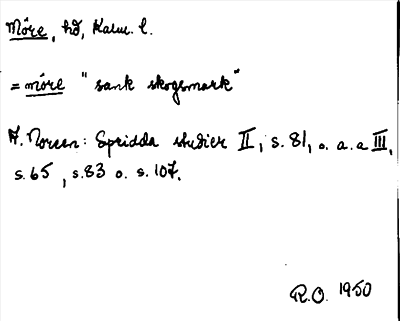 Möre, hd, Kalm. l.
= möre "sank skogsmark"
A. Noreen: Spridda studier II, s. 81, o. a. a III,
s. 65, s. 83 o. s. 107.
R.O. 1950